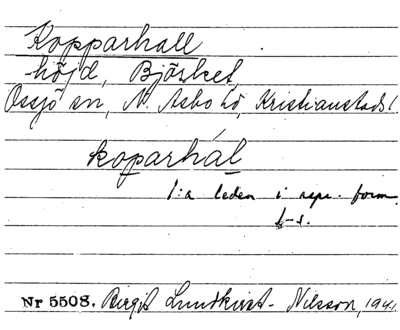 Kopparhall
höjd, Björket,
Össjö sn, N. Åsbo hd, Kristianstads l.
koparhál
1:a leden i rspr. form
Nr 5508. Birgit Lundkvist-Nilsson, 1941